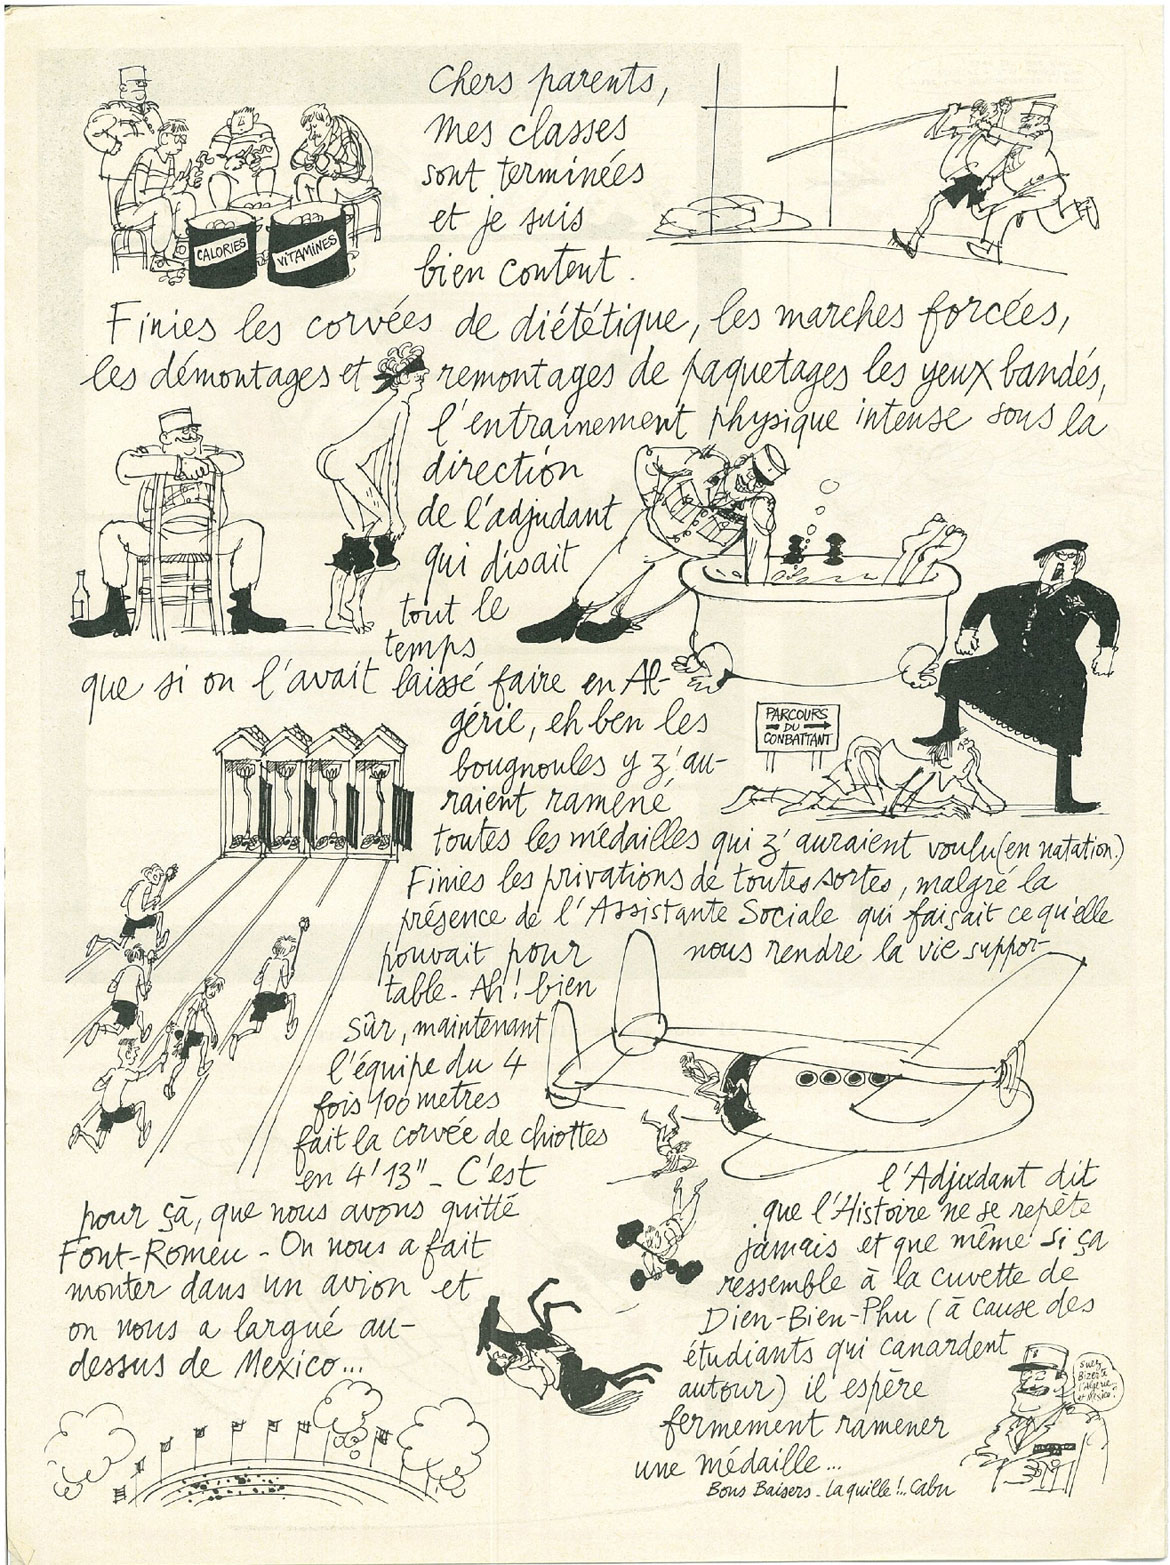 Chers parents,
mes classes
sont terminées
et je suis
bien content.
CALORIES
VITAMINES
Finies les corvées de diététique, les marches forcées,
les démontages et remontages de paquetages les yeux bandés,
l'entrainement physique intense sous la
direction
de l'adjudant
qui disait
tout le
temps
que si on l'avait laissé faire en Al-
gérie, eh ben les
bougnoules y z'au-
raient ramené
toutes les médailles qui z'auraient voulu (en natation.)
PARCOURS
DU
CONBATTANT
Finies les privations de toutes sortes, malgré la
présence de l'Assistante Sociale qui faisait ce qu'elle
pouvait pour nous rendre la vie suppor-
table. Ah! bien
sûr, maintenant
l'équipe du 4
fois 100 metres
fait la corvée de chiottes
en 4'13" _ C'est
pour çà, que nous avons quitté
Font-Romeu - On nous a fait
monter dans un avion et
on nous a largué au-
dessus de Mexico...
l'Adjudant dit
que l'Histoire ne se repète
jamais et que même si ça
ressemble à la cuvette de
Dien-Bien-Phu (à cause des
étudiants qui canardent
autour) il espère
fermement ramener
une médaille...
Suez
Bizerte
l'Algérie
et Mexico!
Bons Baisers - la quille!.. Cabu